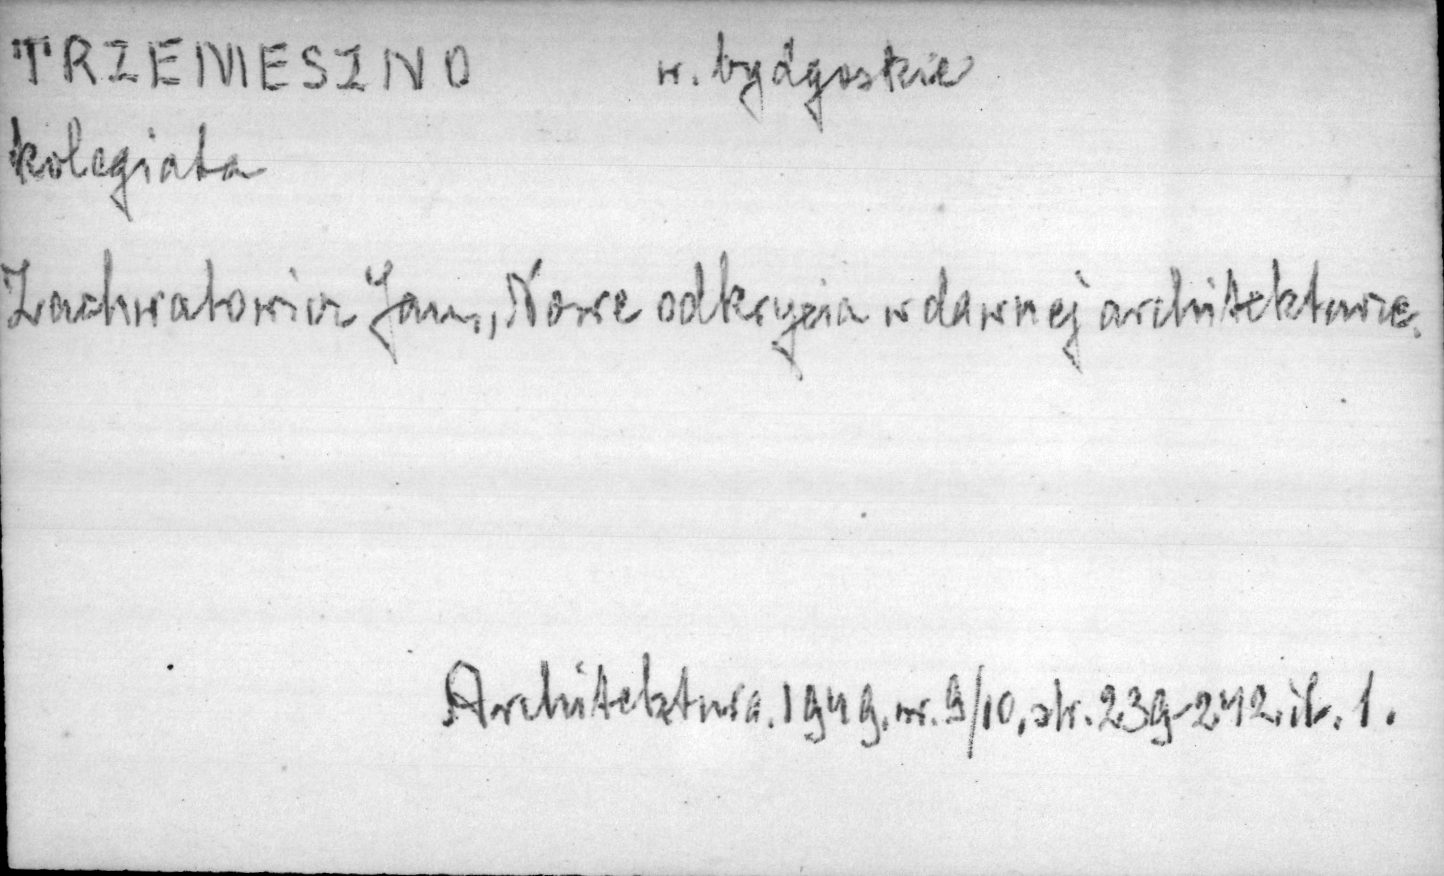 TRZEMESZNO w. bydgoskie
kolegiata
Zachwatowicz Jan, Nowe odkrycia w dawnej architekturze.
Architektura. 1949, nr. 9/10, str. 239-242. il. 1.